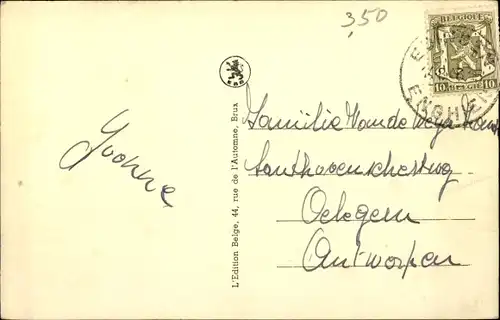 3,50
BELGIQUE
10 BELGIË 10
ENGHIEN
Yvonne
L'Edition Belge, 44, rue de l'Automne, Brux
Familie Van de
Oelegem
Antwerpen